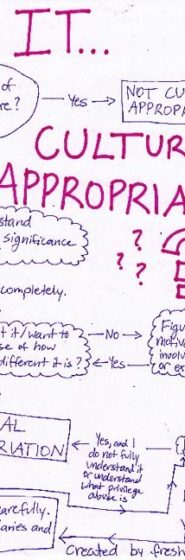 IT...
of
re?
Yes
NOT CU
APPROP
CULTUR
APPROPRIA
stand
significance
? ? ?
completely.
t it/want to
se of how
different it is?
No
Yes
Figu
motiv
involv
or ex
AL
RIATION
Yes, and I
do not fully
understand it
or understand
what privilege
abuse is
arefully.
aries and
Created by fresh